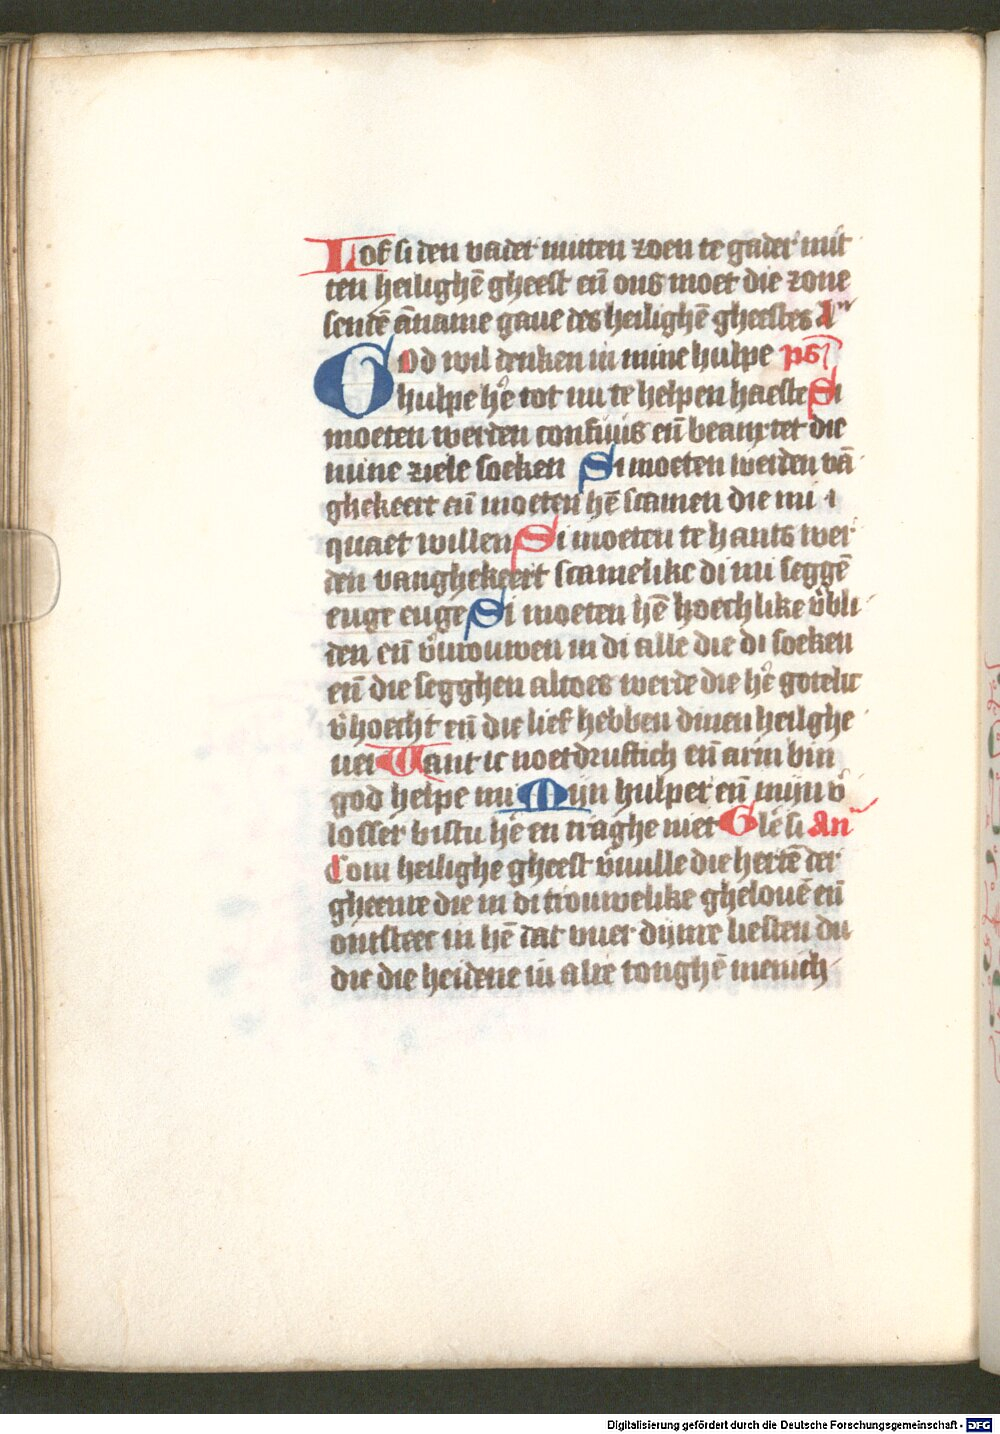 Lof si den vader mitten zoen te gader mit
ten heilighē gheest eñ ons moet die zone
sendē āname gaue des heilighē gheestes A
God wil denken in mine hulpe ps
hulpe hē tot mi te helpen haeste Si
moeten werden confuus eñ beanxtet die
mine ziele soeken Si moeten werden vā
ghekeert eñ moeten hē scamen die mi
quaet willen Si moeten te hants wer
den vanghekeert scamelike di mi seggē
euge euge Si moeten hē hoechlike v̄bli
den eñ v̄urouwen in di alle die di soeken
eñ die segghen altoes werde die hē gotelic
v̄hoecht eñ die lief hebben dinen heilghe
uer Want ic noetdruftich eñ arm bin
god helpe mi Mijn hulper eñ mijn v̄
losser bistu hē en traghe niet Glē si An
Com heilighe gheest v̄uulle die hertē der
gheenre die in di trouwelike ghelouē eñ
ontsteec in hē dat vuer dijnre liefden du
die die heidene in alre tonghē menich
Digitalisierung gefördert durch die Deutsche Forschungsgemeinschaft - DFG